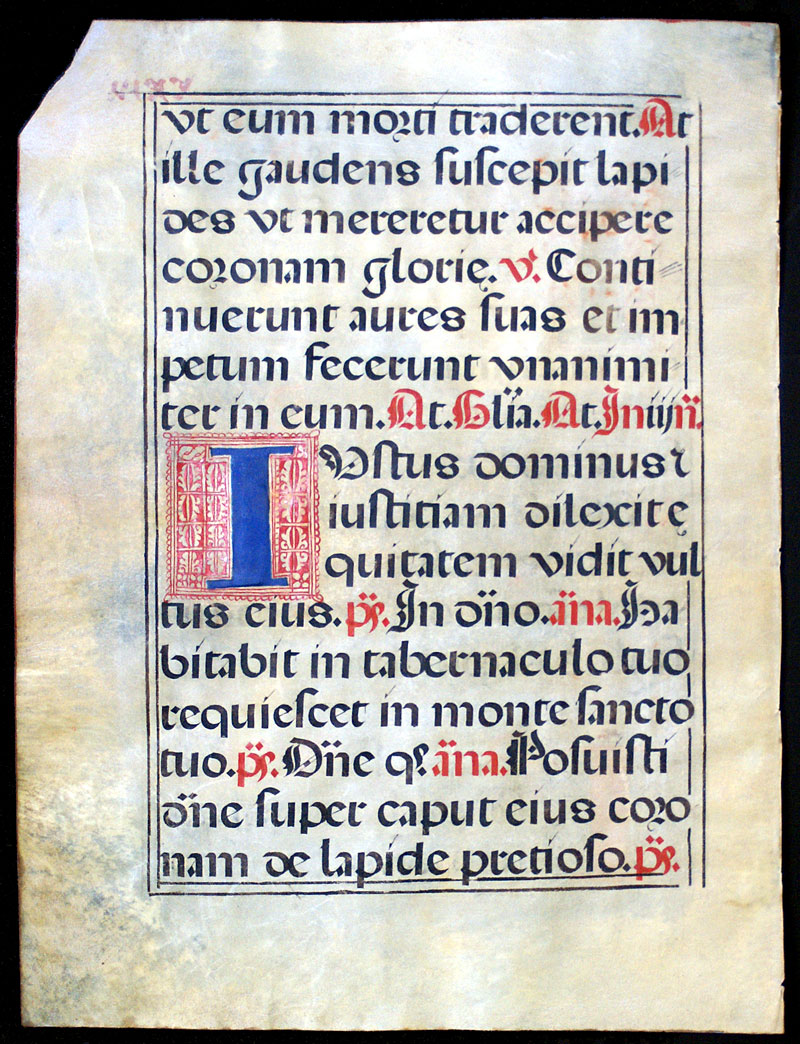 vt eum morti traderent. At
ille gaudens ſuſcepit lapi
des vt mereretur accipere
coronam glorię. v. Conti
nuerunt aures ſuas et im
petum fecerunt vnanimi
ter in eum. At. Gl̃ia. At. In iij ñ.
IVſtus dominus ⁊
iuſtitiam dilexit ę
quitatem vidit vul
tus eius. p̃s. In dño. añna. Ha
bitabit in tabernaculo tuo
requieſcet in monte ſancto
tuo. p̃s. Dñe q̃s. añna. Poſuiſti
dñe ſuper caput eius coro
nam de lapide pretioſo. p̃s.